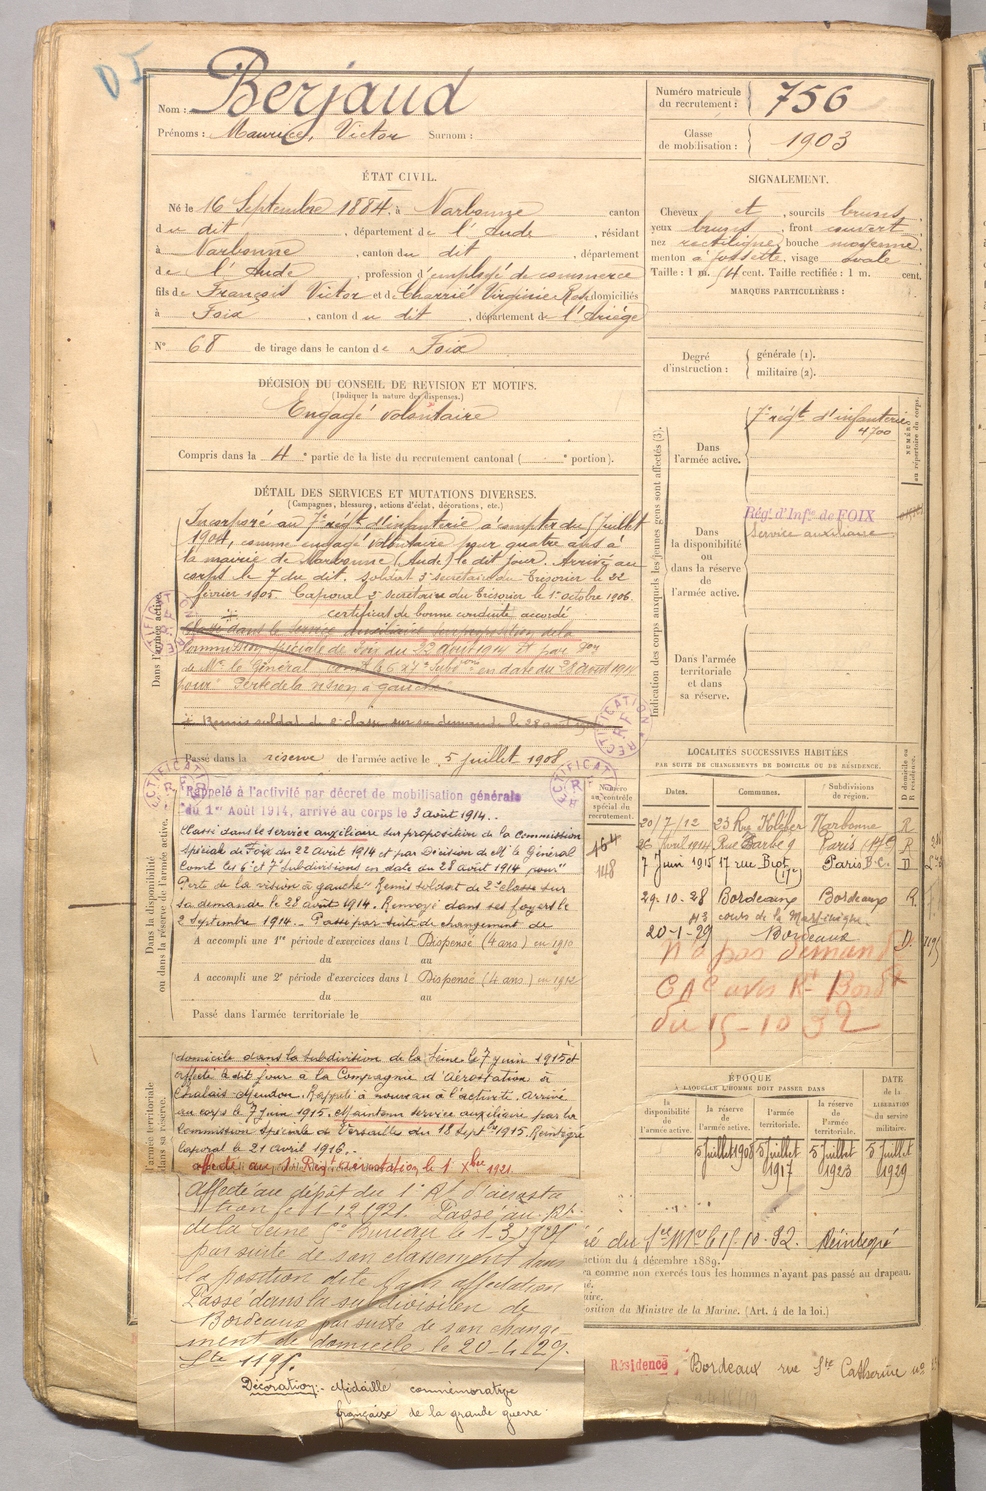 Nom : Berjaud
Prénoms : Maurice, Victor Surnom :
Numéro matricule du recrutement : 756
Classe de mobilisation : 1903
ÉTAT CIVIL.
Né le 16 Septembre 1884, à Narbonne canton
du dit, département de l'Aude, résidant
à Narbonne, canton du dit département
de l'Aude, profession d'employé de commerce
fils de François Victor et de Charrié Virginie Rose domiciliés
à Foix, canton du dit, département de l'Ariège
N° 68 de tirage dans le canton de Foix
SIGNALEMENT.
Cheveux et, sourcils bruns,
yeux bruns, front couvert,
nez rectiligne, bouche moyenne,
menton à fossette, visage ovale
Taille : 1 m. cent. Taille rectifiée : 1 m. cent.
MARQUES PARTICULIÈRES :
Degré d'instruction : générale (1).
militaire (2).
DÉCISION DU CONSEIL DE REVISION ET MOTIFS.
(Indiquer la nature des dispenses.)
Engagé volontaire
Compris dans la 4e partie de la liste du recrutement cantonal ( e portion).
Indication des corps auxquels les jeunes gens sont affectés (3).
NUMÉRO au répertoire du corps.
Dans l'armée active.
7e régt d'infanterie
4700
Dans la disponibilité ou dans la réserve de l'armée active.
Régt d'Infie de FOIX
Service auxiliaire
Dans l'armée territoriale et dans sa réserve.
DÉTAIL DES SERVICES ET MUTATIONS DIVERSES.
(Campagnes, blessures, actions d'éclat, décorations, etc.)
Dans l'armée active.
Incorporé au 7e régt d'infanterie à compter du 7 juillet
1904, comme engagé volontaire pour quatre ans à
la mairie de Narbonne (Aude) le dit jour. Arrivé au
corps le 7 du dit. Soldat 3e secrétaire du Trésorier le 22
février 1905. Caporal 2e Secrétaire du Trésorier le 1er octobre 1906.
certificat de bonne conduite accordé
Classé dans le service auxiliaire sur proposition de la
Commission spéciale de Foix du 22 août 1914 et par Don
de Mr le Général Comt le 6e et 7e Subdions en date du 28 août 1914
pour Perte de la vision à gauche
Remis soldat de 2e classe sur sa demande le 28 août
Passé dans la réserve de l'armée active le 5 juillet 1908
RECTIFICATION R.F.
RECTIFICATION R.F.
RECTIFICATION R.F.
RECTIFICATION R.F.
Dans la disponibilité ou dans la réserve de l'armée active.
Rappelé à l'activité par décret de mobilisation générale
du 1er Août 1914, arrivé au corps le 3 août 1914.
Classé dans le service auxiliaire sur proposition de la Commission
spéciale de Foix du 22 Août 1914 et par Décision de Mr le Général
Comt les 6e et 7e Subdivisions en date du 28 août 1914 pour "
Perte de la vision à gauche" Remis soldat de 2e classe sur
sa demande le 28 août 1914. Renvoyé dans ses foyers le
2 Septembre 1914. Passé par suite de changement de
A accompli une 1re période d'exercices dans l Dispensé (4 ans) en 1910
du au
A accompli une 2e période d'exercices dans l Dispensé (4 ans) en 1912
du au
Passé dans l'armée territoriale le
Numéro au contrôle spécial du recrutement.
164
148
LOCALITÉS SUCCESSIVES HABITÉES
PAR SUITE DE CHANGEMENTS DE DOMICILE OU DE RÉSIDENCE.
Dates. Communes. Subdivisions de région. D domicile ou R résidence.
20/7/12 23 Rue Kléber Narbonne R
26 Avril 1914 Rue Paris R
7 Juin 1915 17 rue Biot (17e) Paris B.C. D
29-10-28 Bordeaux Bordeaux R.
43 cours de la Martinique
20-1-29 Bordeaux D.
N'a pas demandé
CAC avis Rt Bordx
du 15-10 32
armée territoriale dans sa réserve.
domicile dans la subdivision de la Seine le 7 juin 1915 et
affecté à dit jour à la Compagnie d'Aérostation à
Chalais-Meudon. Rappelé à nouveau à l'activité. Arrivé
au corps le 7 juin 1915. Maintenu service auxiliaire par la
Commission spéciale de Versailles du 18 Septbre 1915. Réintégré
Caporal le 21 avril 1916.
affecté au 1 Régt aérostation, le 1 Xbre 1921.
Affecté au dépôt du 1er Rt d'aérosta
tion le 1-12 1921. Passé au Rt
de la Seine Bureau le 1-3-
par suite de son classement dans
la position dite sans affectation
Passé dans la subdivision de
Bordeaux par suite de son change
ment de domicile le 20-1-29.
Décoration :- Médaille commémorative
française de la grande guerre.
ÉPOQUE
À LAQUELLE L'HOMME DOIT PASSER DANS
la disponibilité de l'armée active. la réserve de l'armée active. l'armée territoriale. la réserve de l'armée territoriale.
DATE de la LIBÉRATION du service militaire.
5 juillet 1908 5 juillet 1917 5 juillet 1923 5 juillet 1929
15.10.32. Réintégré
ction du 4 décembre 1889.
a comme non exercés tous les hommes n'ayant pas passé au drapeau.
osition du Ministre de la Marine. (Art. 4 de la loi.)
Résidence : Bordeaux rue Ste Catherine no